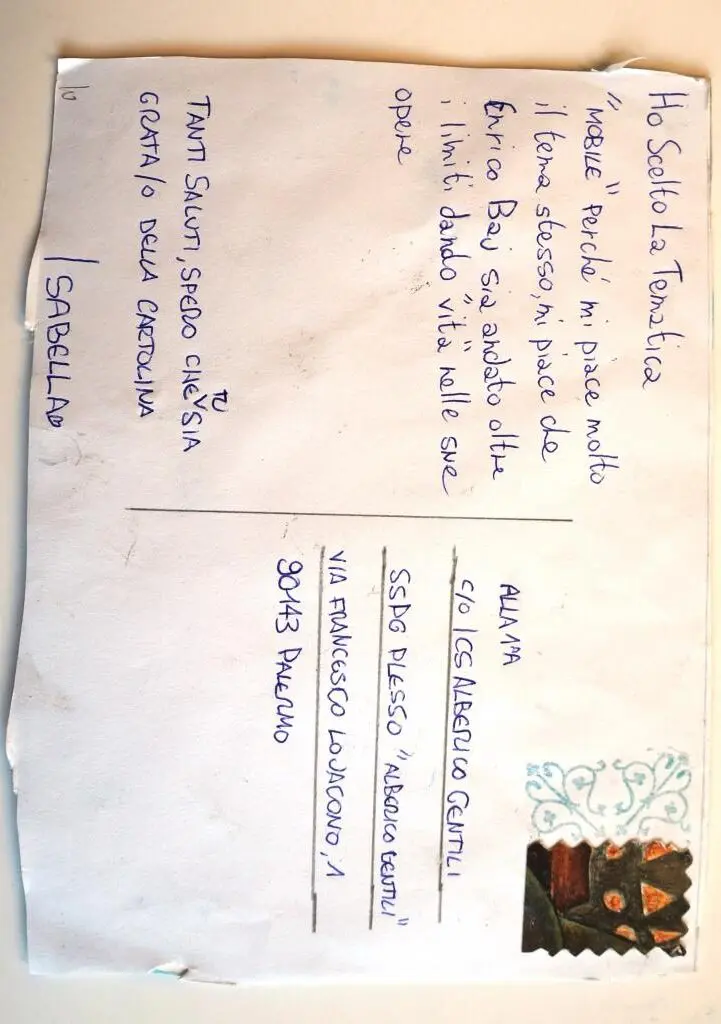 Ho Scelto La Tematica
"MOBILE" Perché mi piace molto
il tema stesso, mi piace che
Enrico Baj sia andato oltre
i limiti dando "vita" nelle sue
opere
TANTI SALUTI, SPERO CHE TU SIA
GRATA/O DELLA CARTOLINA
ISABELLA
ALLA 1ªA
C/O ICS ALBERICO GENTILI
SSPG PLESSO "ALBERICO GENTILI"
VIA FRANCESCO LOJACONO, 1
90143 PALERMO